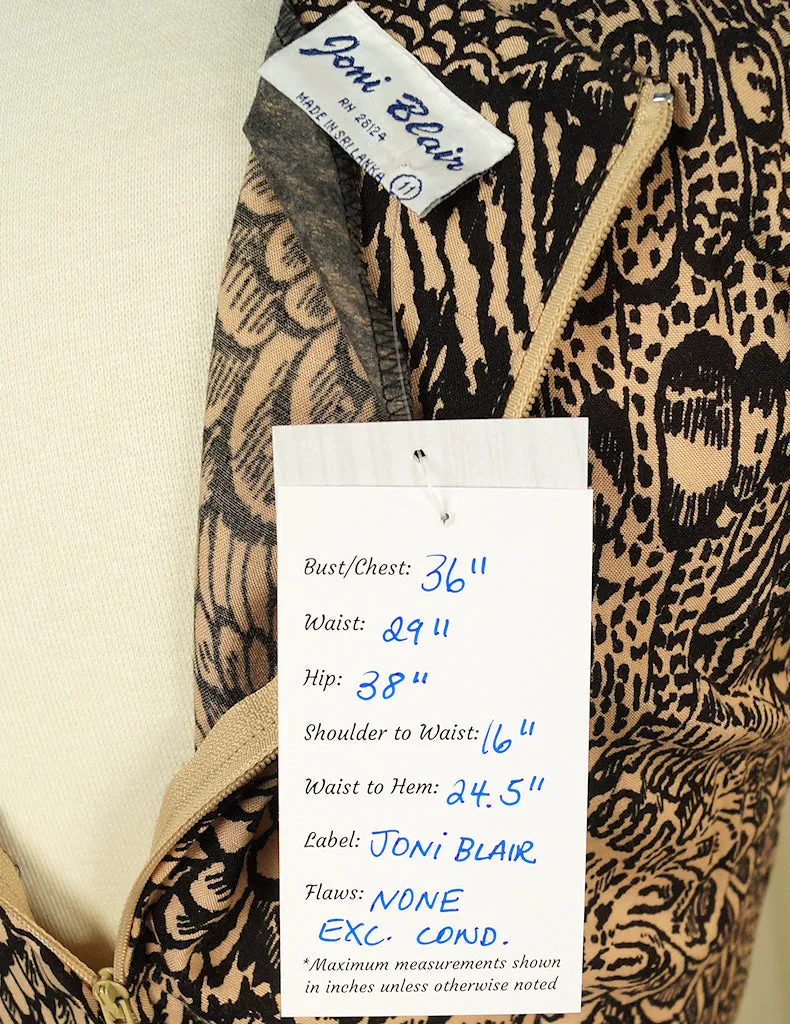 Joni Blair
RN 26124
MADE IN SRI LANKA
11
Bust/Chest: 36"
Waist: 29"
Hip: 38"
Shoulder to Waist: 16"
Waist to Hem: 24.5"
Label: JONi BLAIR
Flaws: NONE
EXC. COND.
*Maximum measurements shown
in inches unless otherwise noted